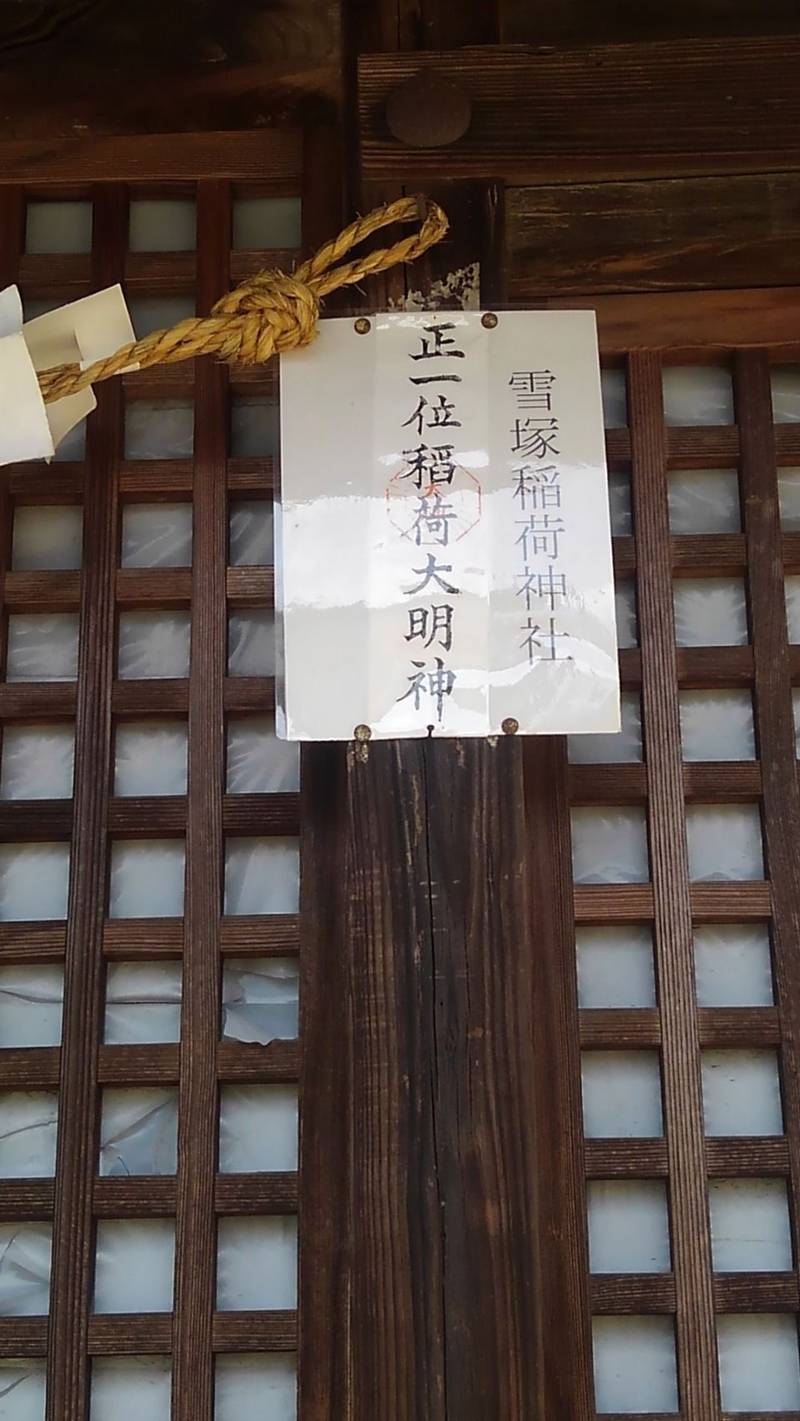 雪塚稲荷神社
正一位稻荷大明神